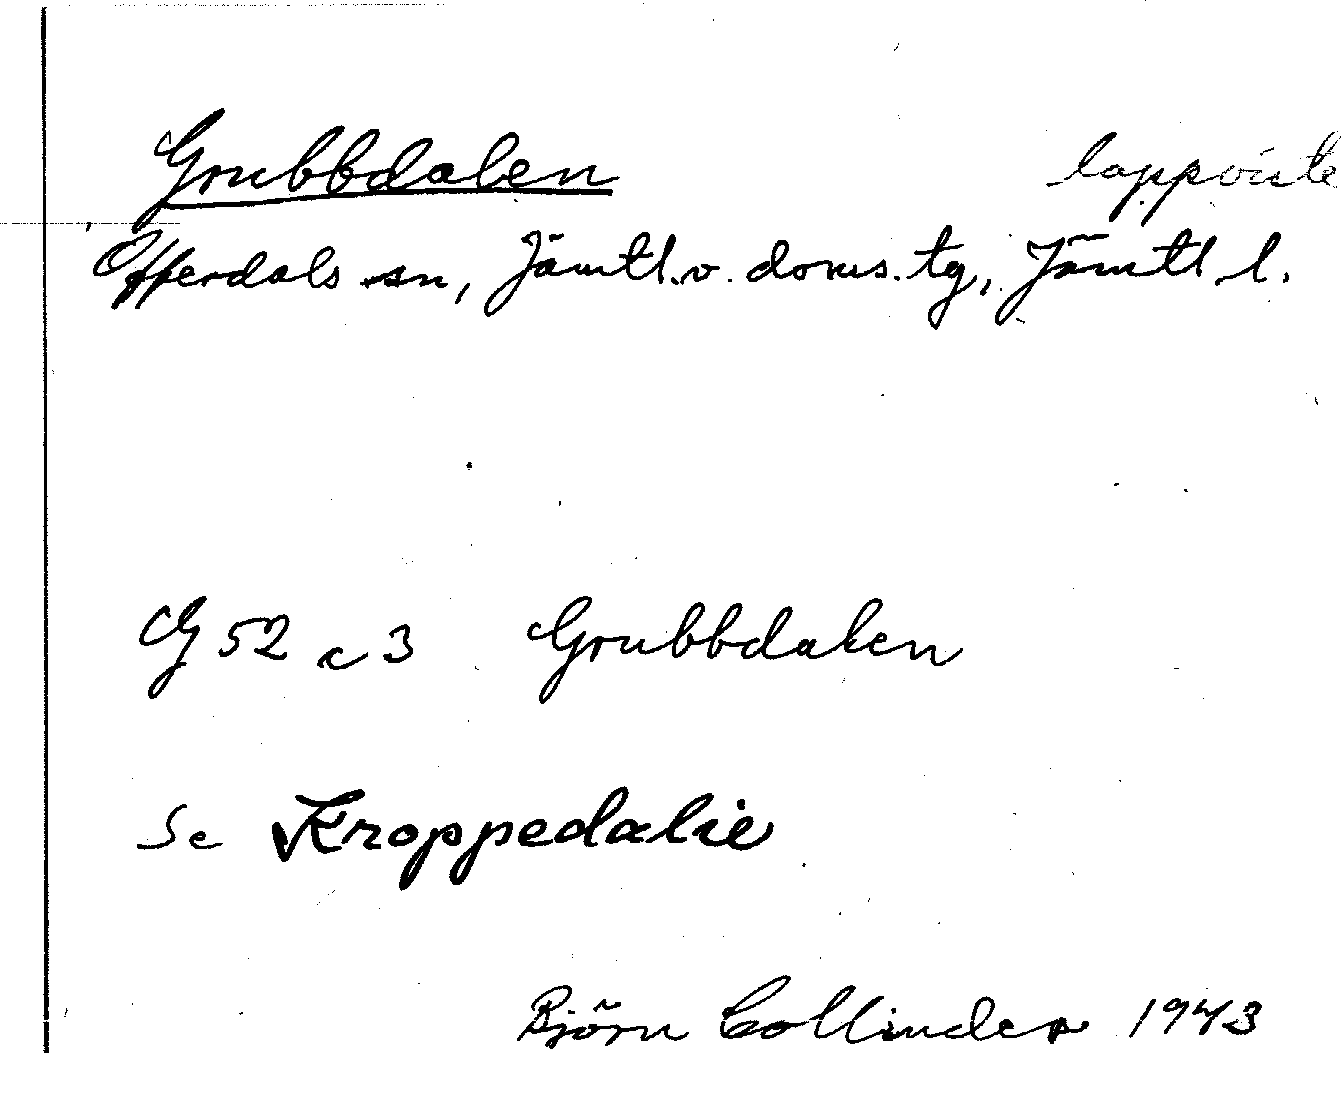 Grubbdalen lappviste
Offerdals sn, Jämtl. v. doms. tg, Jämtl. l.
G 52 c 3 Grubbdalen
Se Kroppedalie
Björn Collinder 1943